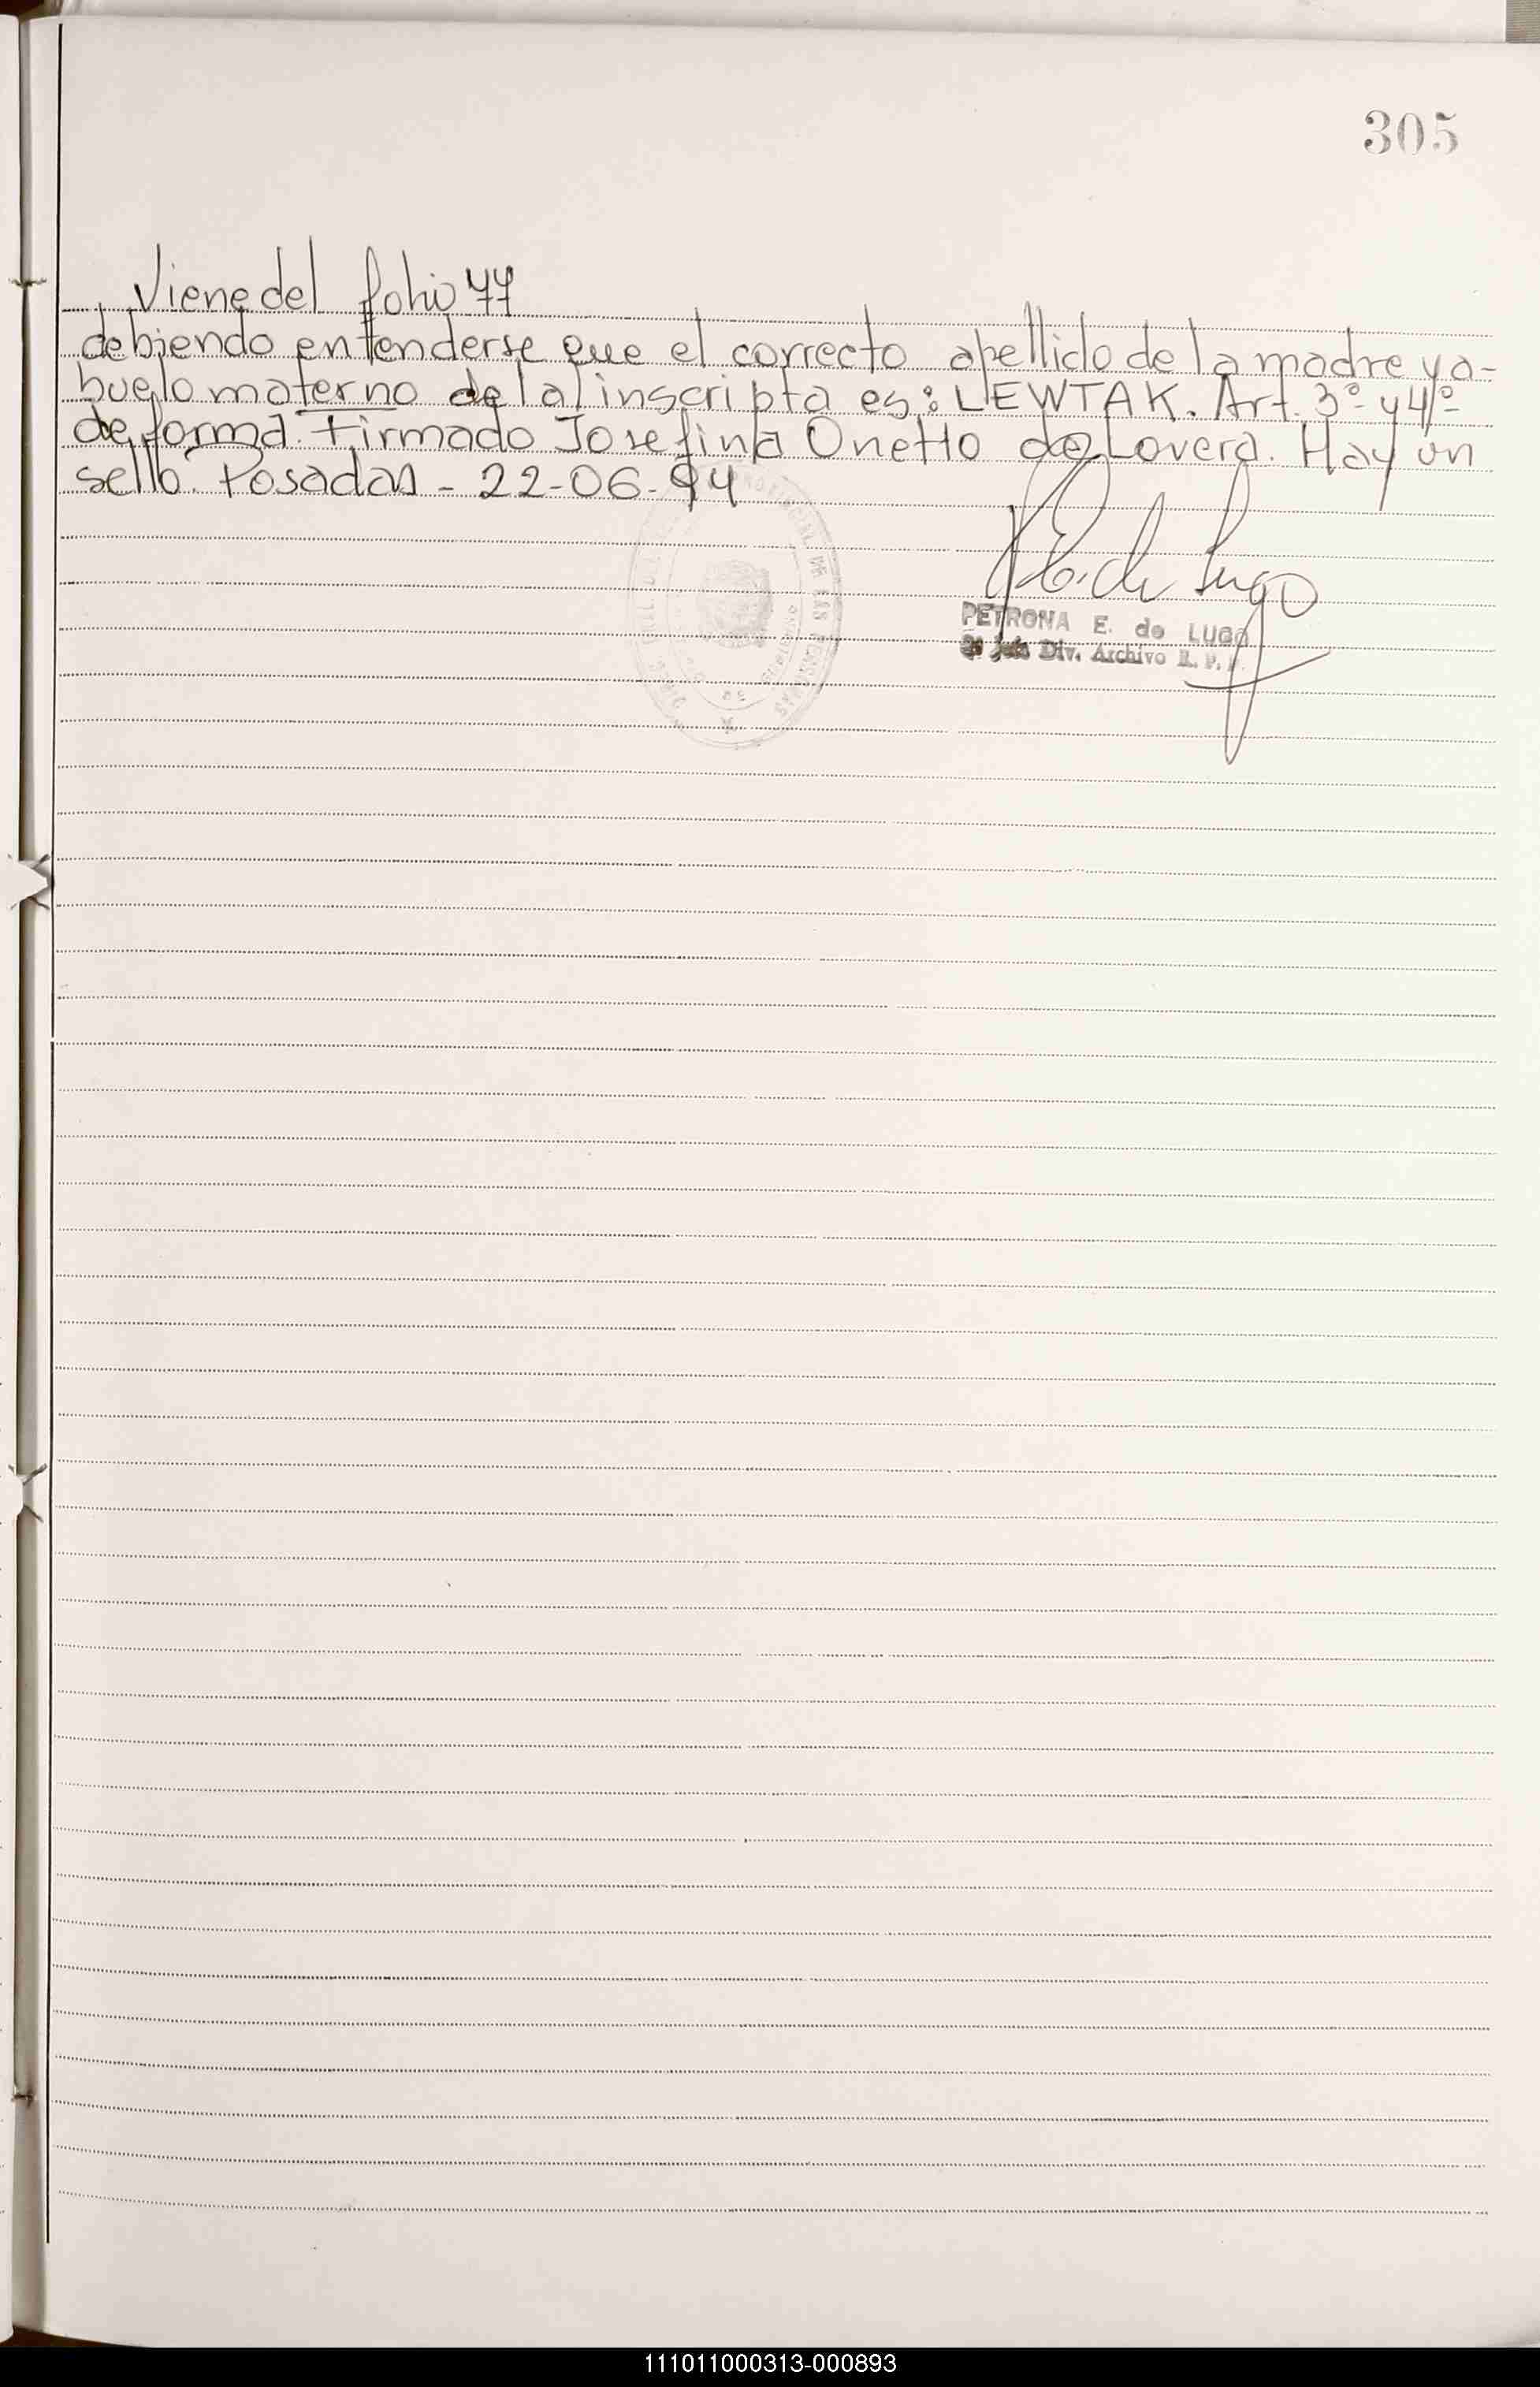 305
Viene del folio 44
debiendo entenderse que el correcto apellido de la madre y a-
buelo materno de la inscripta es: LEWTAK. Art. 3º y 4º
de forma. Firmado Josefina Onetto de Lovera. Hay un
sello. Posadas - 22-06-94
E. de Lugo
PETRONA E. de LUGO
Jefe Div. Archivo R. P.
111011000313-000893